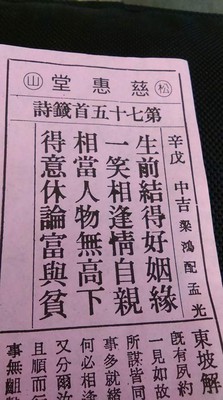 松山慈惠堂
第七十五首籤詩
辛戊 中吉 梁鴻配孟光
生前結得好姻緣
一笑相逢情自親
相當人物無高下
得意休論富與貧
東坡解
既有夙約
一見如故
所謀皆同
事多就緒
何必相逢
又分爾汝
且順而行
事無齟